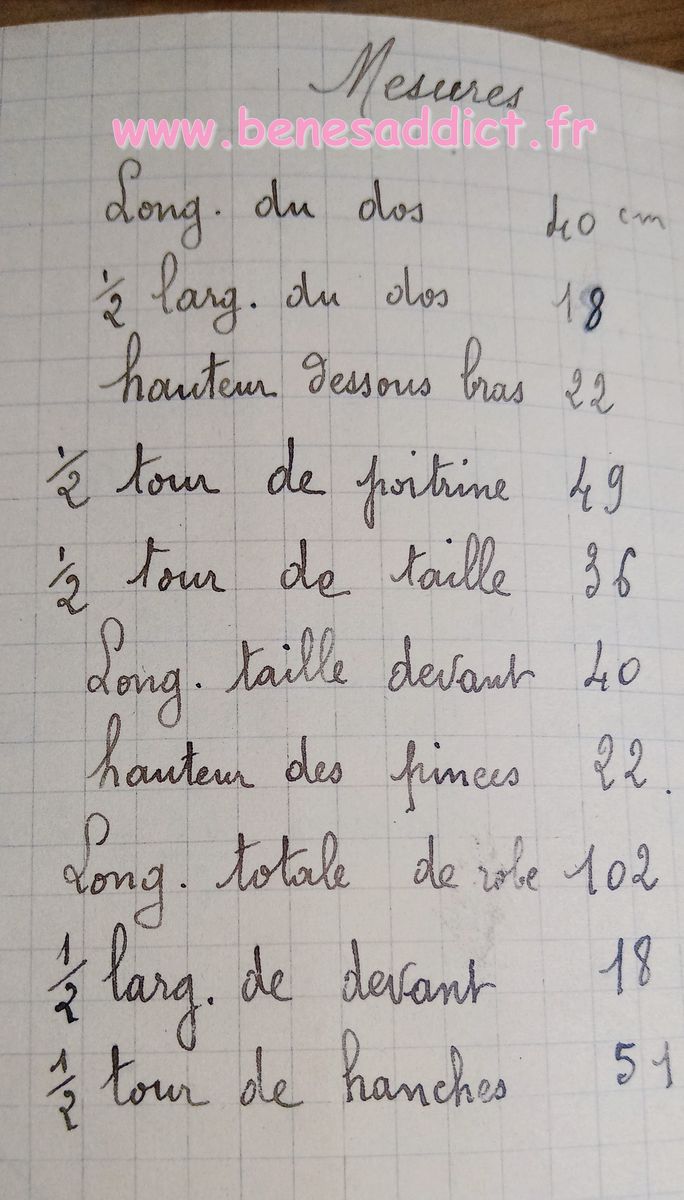 Mesures
www.benesaddict.fr
Long. du dos 40 cm
1/2 larg. du dos 18
hauteur dessous bras 22
1/2 tour de poitrine 49
1/2 tour de taille 36
Long. taille devant 40
hauteur des pinces 22.
Long. totale de robe 102
1/2 larg. de devant 18
1/2 tour de hanches 51